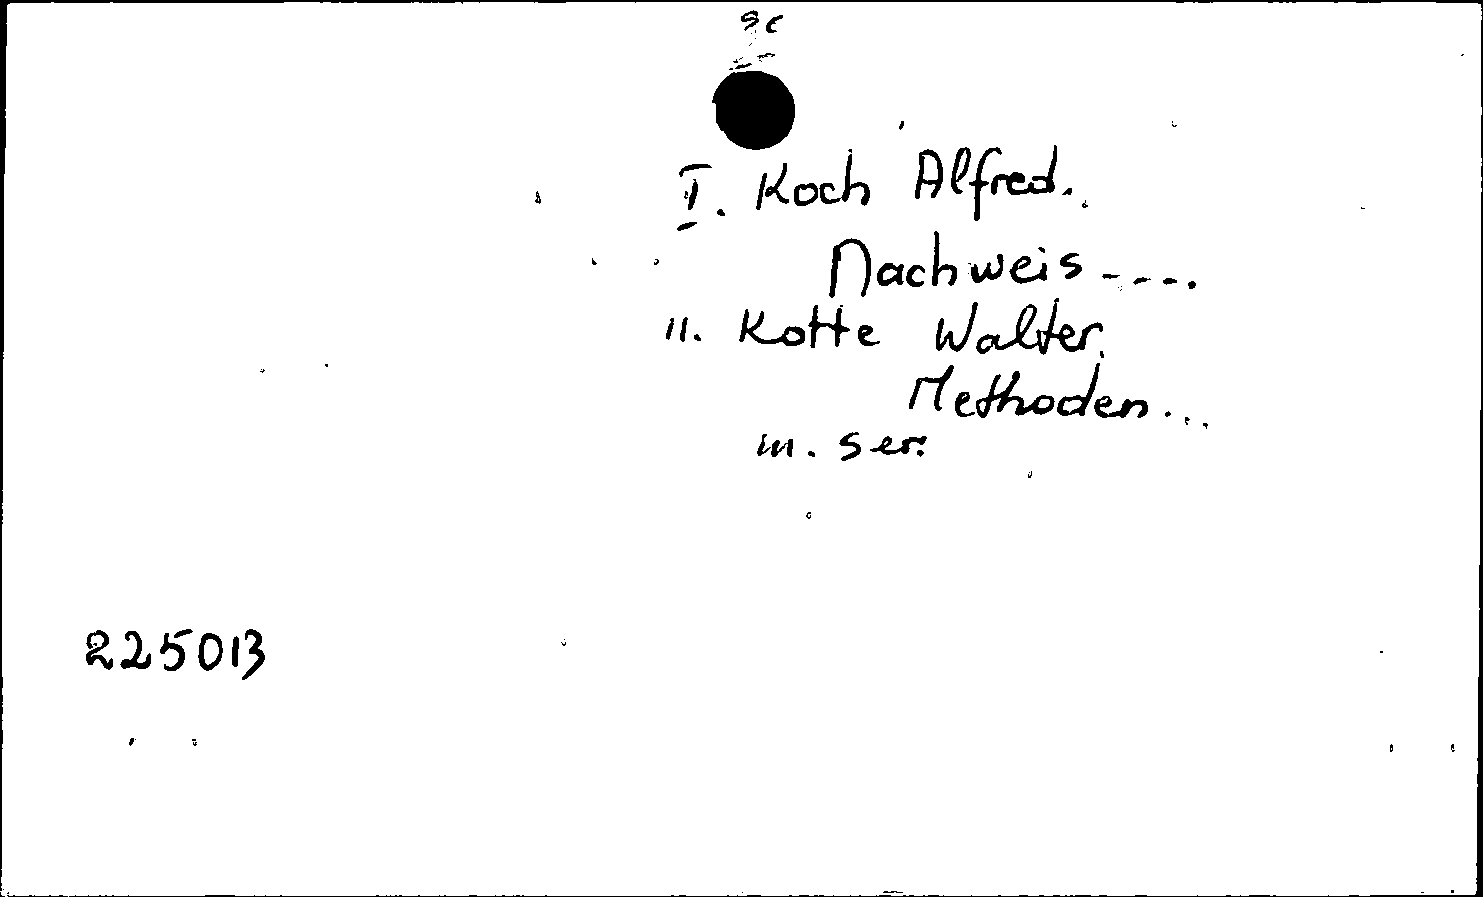 sc
I. Koch Alfred.
Nachweis - - - .
II. Kotte Walter.
Methoden...
III. ser.
225013